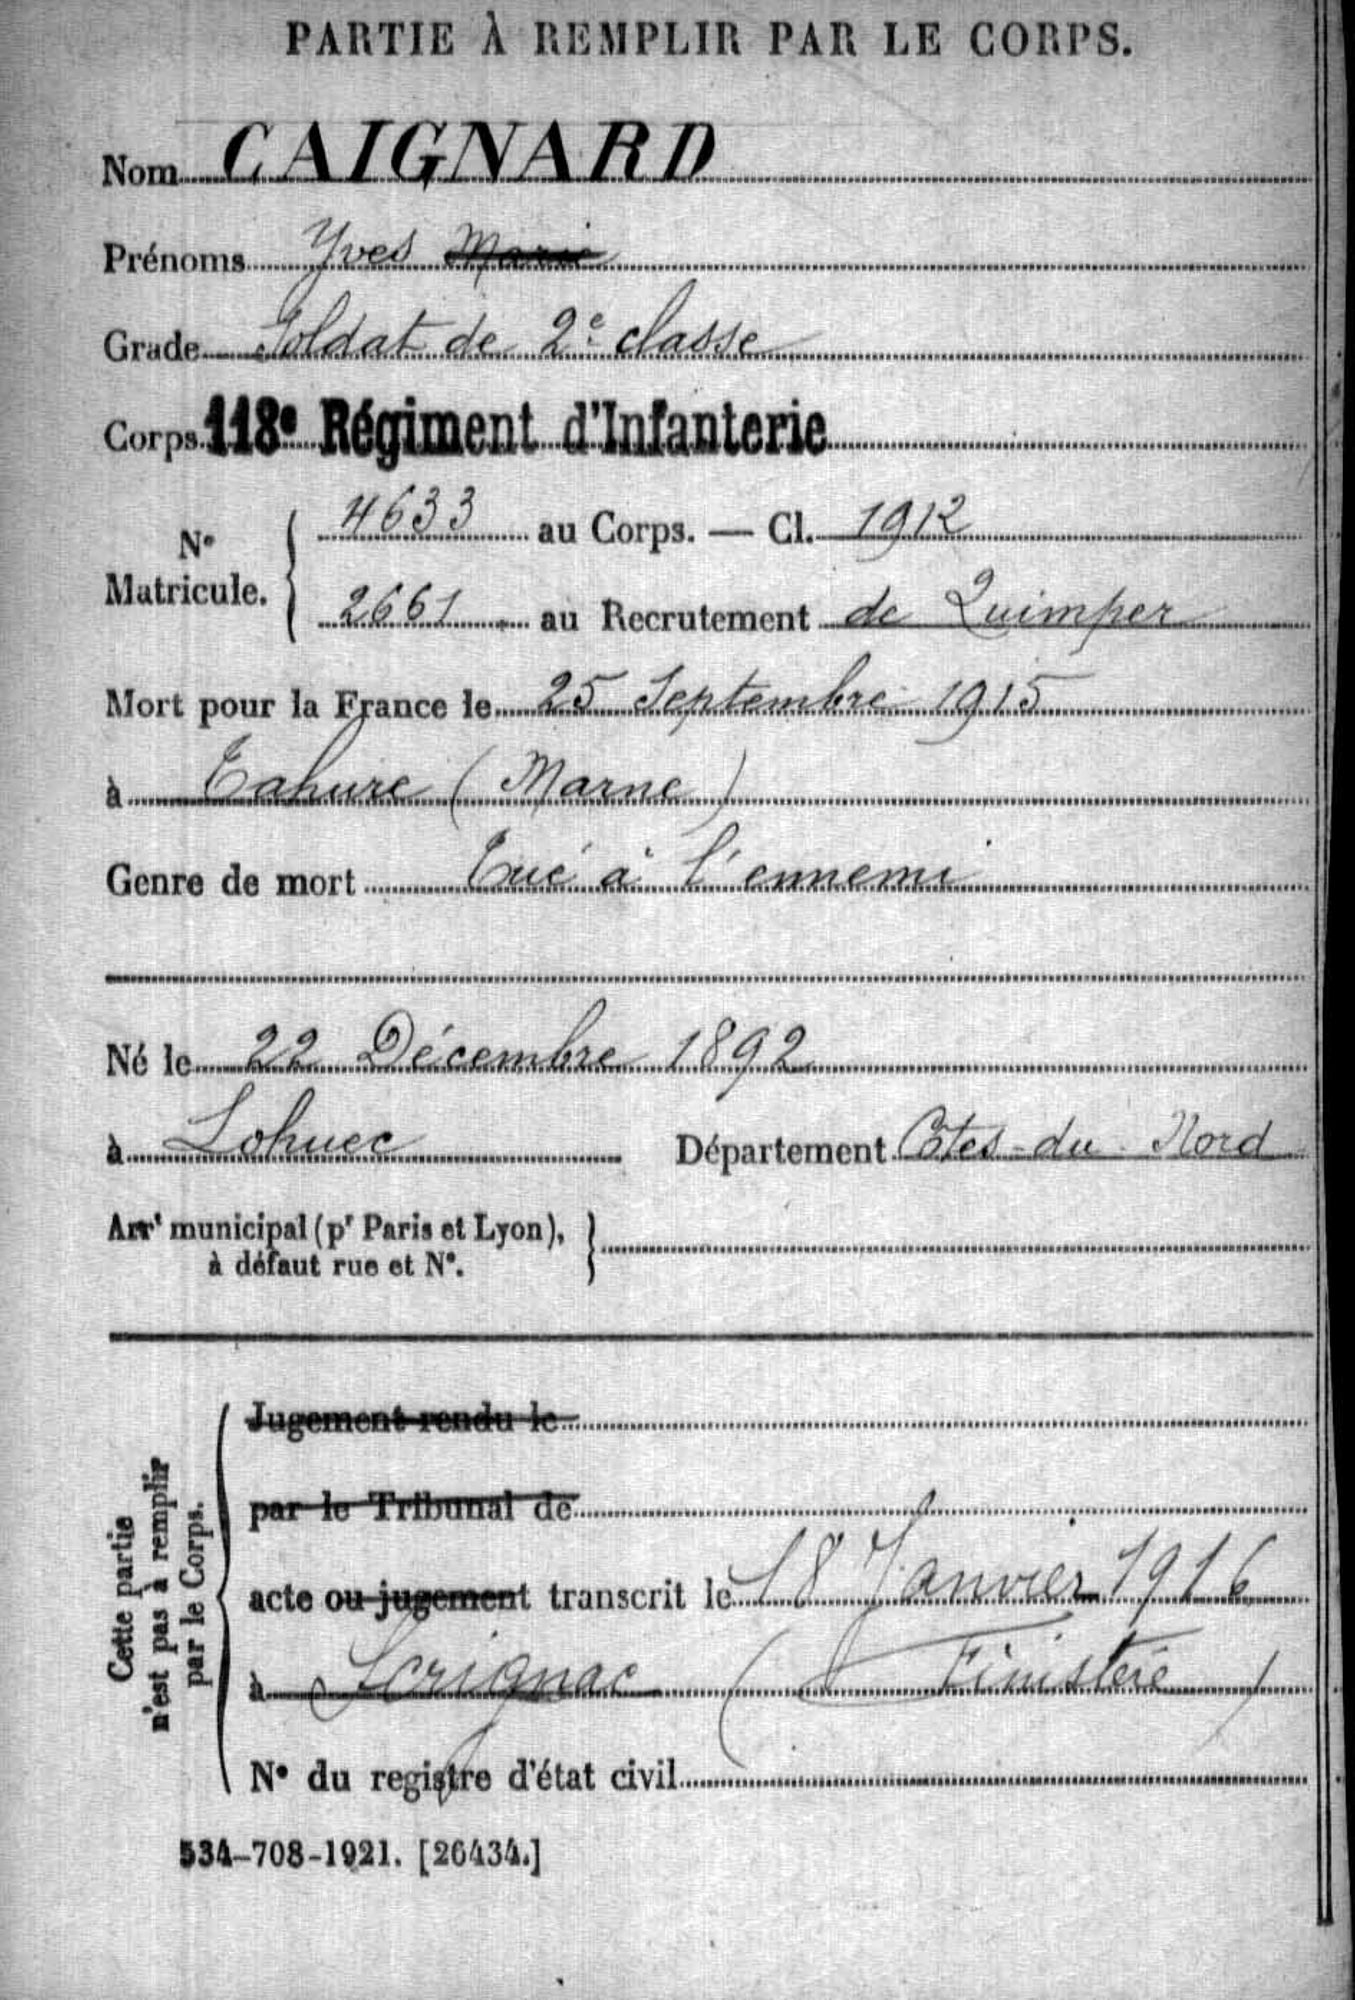 PARTIE À REMPLIR PAR LE CORPS.
Nom CAIGNARD
Prénoms Yves Marie
Grade Soldat de 2e classe
Corps 118e Régiment d'Infanterie
N°
Matricule.
4633 au Corps. — Cl. 1912
2661 au Recrutement de Quimper
Mort pour la France le 25 Septembre 1915
à Tahure (Marne)
Genre de mort Tué à l'ennemi
Né le 22 Décembre 1892
à Lohuec Département Côtes-du-Nord
Arrt municipal (pr Paris et Lyon),
à défaut rue et N°.
Cette partie
n'est pas à remplir
par le Corps.
Jugement rendu le
par le Tribunal de
acte ou jugement transcrit le 18 Janvier 1916
à Scrignac (Finistère)
N° du registre d'état civil
534-708-1921. [26434.]